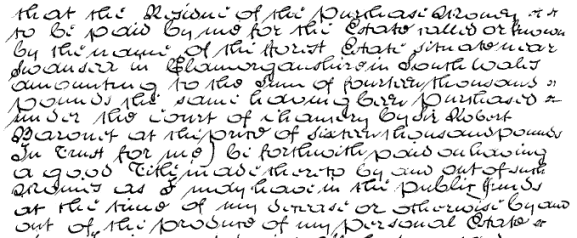 that at the Residue of the Purchase Money
to be paid by me for the Estate called or known
by the name of the Forest Estate situate near
Swansea in Glamorganshire in South Wales
amounting to the sum of fourteen thousand
pounds the same having been purchased
under the Court of Chancery by Sir Robert
Baronet at the price of sixteen thousand pounds
In Trust for me) be forthwith paid on having
a good Title made thereto by and out of such
Monies as I may have in the public funds
at the time of my decease or otherwise by and
out of the produce of my personal Estate